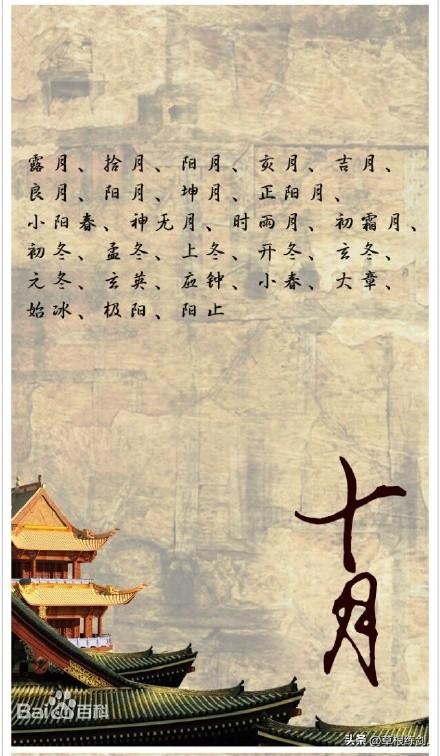 露月、拾月、阳月、亥月、吉月、
良月、阳月、坤月、正阳月、
小阳春、神无月、时雨月、初霜月、
初冬、孟冬、上冬、开冬、玄冬、
元冬、玄英、应钟、小春、大章、
始冰、极阳、阳止
十月
Baidu百科
头条 @草根练剑